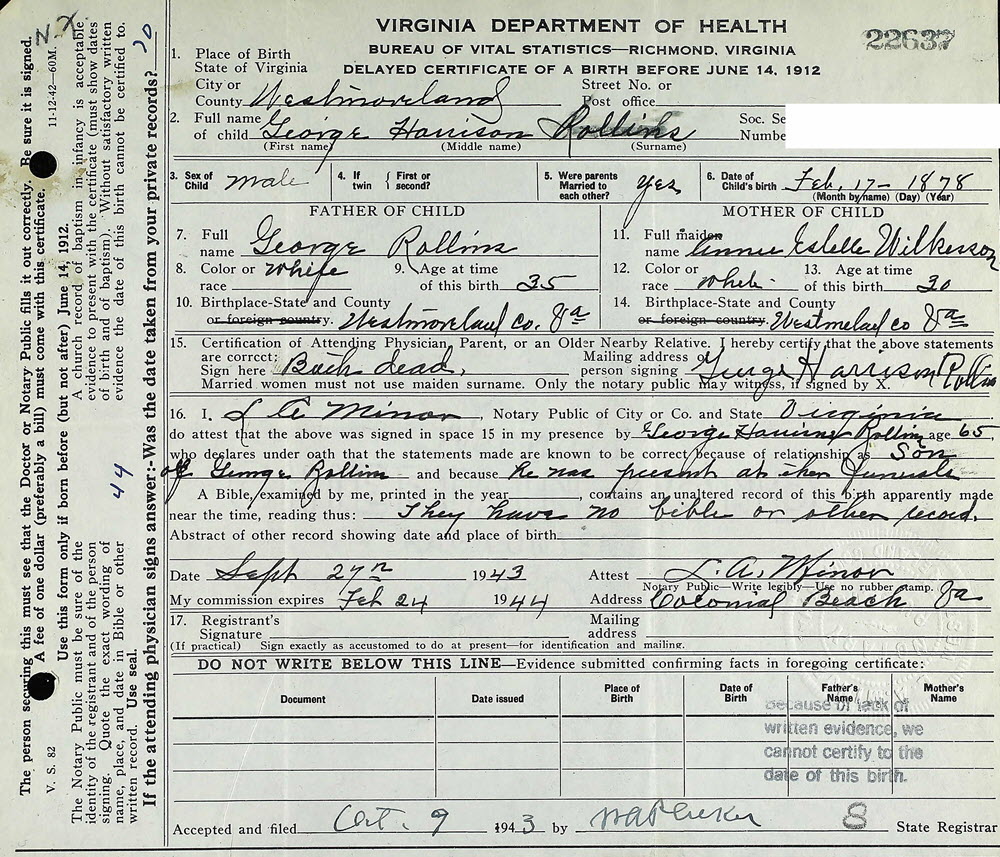 VIRGINIA DEPARTMENT OF HEALTH
BUREAU OF VITAL STATISTICS—RICHMOND, VIRGINIA
DELAYED CERTIFICATE OF A BIRTH BEFORE JUNE 14, 1912
22637
1. Place of Birth
State of Virginia
City or Street No. or
County Westmoreland Post office
2. Full name Soc. Se
of child George Harrison Rollins Numbe
(First name) (Middle name) (Surname)
3. Sex of Child male 4. If twin { First or second? 5. Were parents Married to each other? Yes 6. Date of Child's birth Feb. 17- 1878
(Month by name) (Day) (Year)
FATHER OF CHILD MOTHER OF CHILD
7. Full name George Rollins 11. Full maiden name Annie Estelle Wilkerson
8. Color or race White 9. Age at time of this birth 35 12. Color or race White 13. Age at time of this birth 30
10. Birthplace-State and County 14. Birthplace-State and County
or foreign country. Westmoreland Co. Va or foreign country. Westmelad Co Va
15. Certification of Attending Physician, Parent, or an Older Nearby Relative. I hereby certify that the above statements
are correct: Mailing address of
Sign here Both dead. person signing George Harrison Rollins
Married women must not use maiden surname. Only the notary public may witness, if signed by X.
16. I, L A Minor, Notary Public of City or Co. and State Virginia
do attest that the above was signed in space 15 in my presence by George Harrison Rollins age 65,
who declares under oath that the statements made are known to be correct because of relationship as Son
of George Rollins and because he was present at their funerals
A Bible, examined by me, printed in the year , contains an unaltered record of this birth apparently made
near the time, reading thus: They have no bible or other record.
Abstract of other record showing date and place of birth
Date Sept 27th 1943 Attest L. A. Minor
Notary Public—Write legibly—Use no rubber stamp.
My commission expires Feb 24 1944 Address Colonial Beach Va
17. Registrant's Mailing
Signature address
(If practical) Sign exactly as accustomed to do at present—for identification and mailing.
DO NOT WRITE BELOW THIS LINE—Evidence submitted confirming facts in foregoing certificate:
Document Date issued Place of Birth Date of Birth Father's Name Mother's Name
Because of lack of
written evidence, we
cannot certify to the
date of this birth.
Accepted and filed Oct. 9 1943 by WAPlecker 8 State Registrar
The person securing this must see that the Doctor or Notary Public fills it out correctly. Be sure it is signed.
A fee of one dollar (preferably a bill) must come with this certificate.
V. S. 82 11-12-42—60M.
N.X
Use this form only if born before (but not after) June 14, 1912.
The Notary Public must be sure of the
identity of the registrant and of the person
signing. Quote the exact wording of
name, place, and date in Bible or other
written record. Use seal.
A church record of baptism in infancy is acceptable
evidence to present with the certificate (must show dates
of birth and of baptism). Without satisfactory written
evidence the date of this birth cannot be certified to.
44
If the attending physician signs answer:-Was the date taken from your private records?